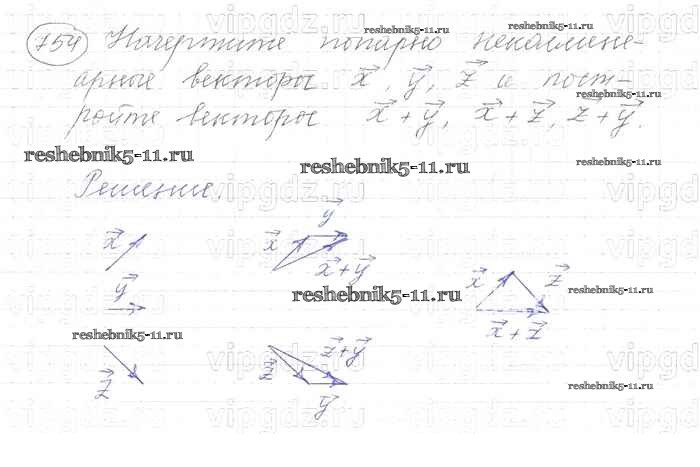 754 Начертите попарно неколлине-
арные векторы x, y, z и пост-
ройте векторы x + y, x + z, z + y.
Решение.
x
y
z
x
y
x+y
x
z
x+z
z
z+y
y
reshebnik5-11.ru
reshebnik5-11.ru
reshebnik5-11.ru
reshebnik5-11.ru
reshebnik5-11.ru
reshebnik5-11.ru
reshebnik5-11.ru
reshebnik5-11.ru
reshebnik5-11.ru
reshebnik5-11.ru
vipgdz.ru